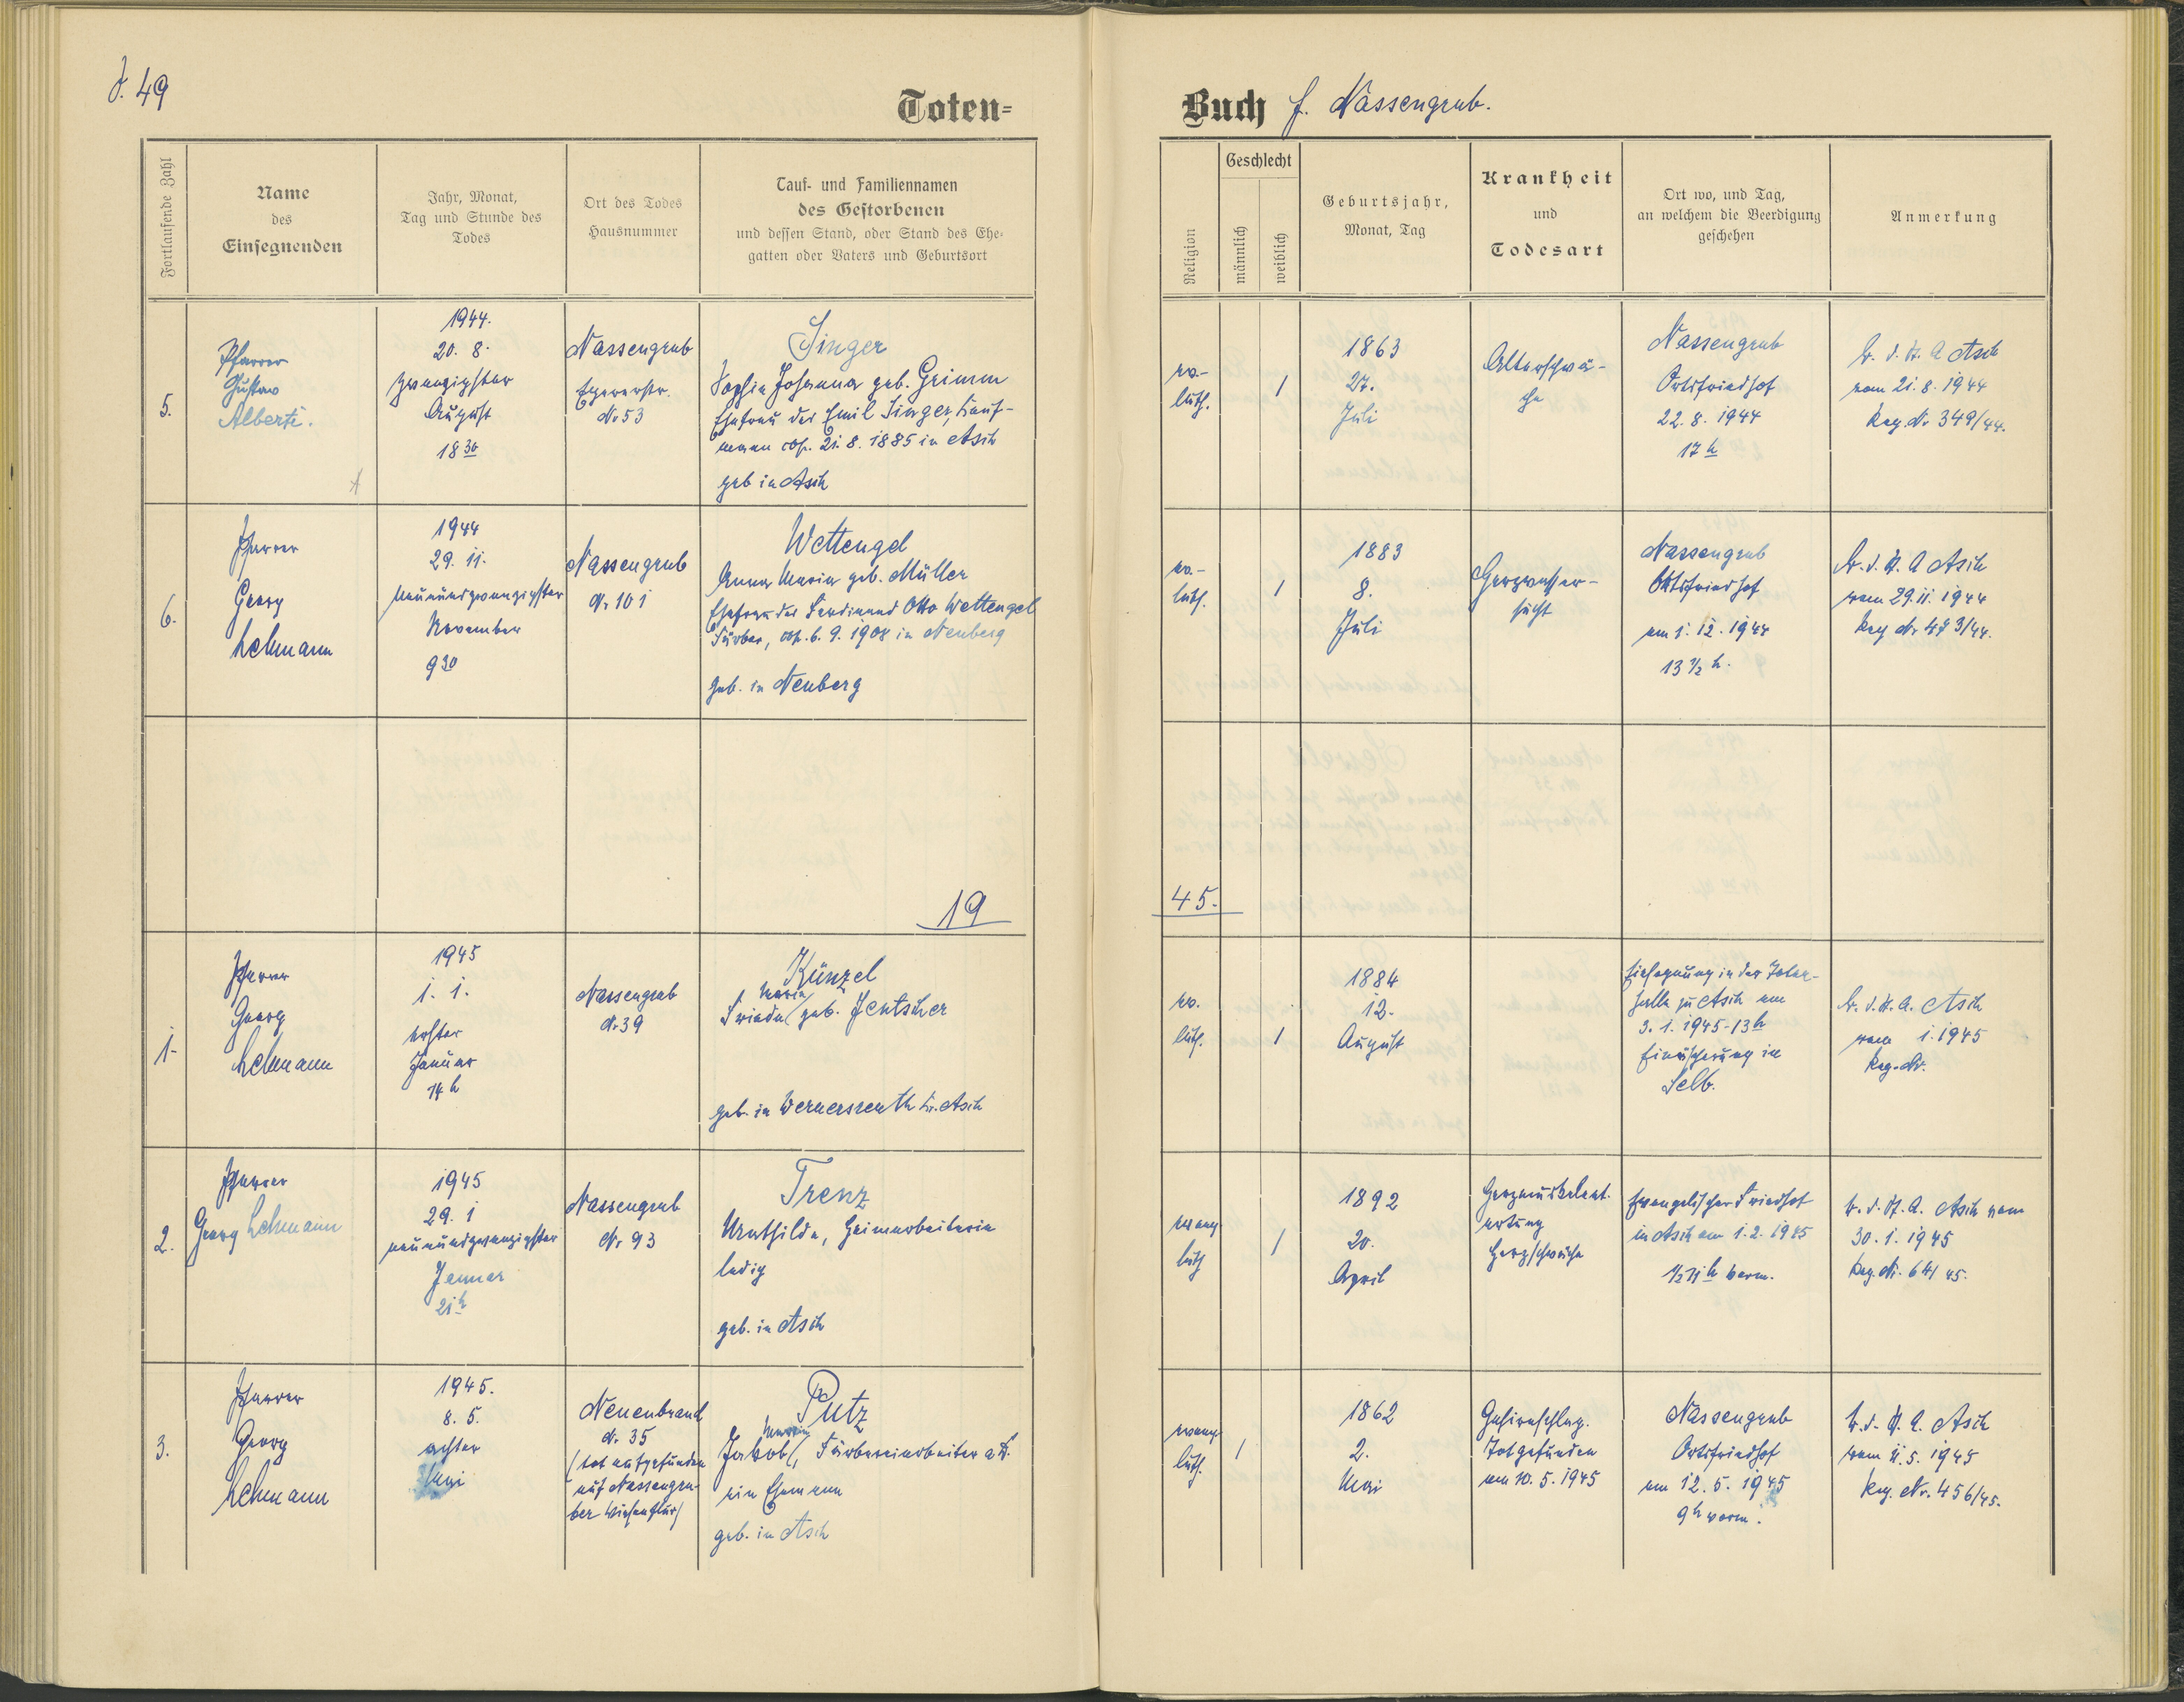 F. 49
Toten=
Buch f. Nassengrub.
Fortlaufende Zahl
Name
des
Einsegnenden
Jahr, Monat,
Tag und Stunde des
Todes
Ort des Todes
Hausnummer
Tauf- und Familiennamen
des Gestorbenen
und dessen Stand, oder Stand des Ehe-
gatten oder Vaters und Geburtsort
Religion
Geschlecht
männlich
weiblich
Geburtsjahr,
Monat, Tag
Krankheit
und
Todesart
Ort wo, und Tag,
an welchem die Beerdigung
geschehen
Anmerkung
5.
Pfarrer
Gustav
Alberti.
1944.
20. 8.
zwanzigster
August
18 30
Nassengrub
Egererstr.
Nr 53
Singer
Sophie Johanna geb. Grimm
Ehefrau des Emil Singer, Kauf-
mann cop. 21. 8. 1885 in Asch
geb in Asch
ev.-
luth.
1
1863
27.
Juli
Altersschwä-
che
Nassengrub
Ortsfriedhof
22. 8. 1944
17 h
B. d. St. A Asch
vom 21. 8. 1944
Reg. Nr 349/44.
6.
Pfarrer
Georg
Lehmann
1944
29. 11.
neunundzwanzigster
November
9 30
Nassengrub
Nr 101
Wettengel
Anna Maria geb. Müller
Ehefrau des Ferdinand Otto Wettengel
Färber, cop. 6. 9. 1908 in Neuberg
geb. in Neuberg
ev.-
luth.
1
1883
8.
Juli
Herzwasser-
sucht
Nassengrub
Ortsfriedhof
am 1. 12. 1944
13 1/2 h.
B. d. St. A Asch
vom 29. 11. 1944
Reg Nr 473/44.
19
45.
1.
Pfarrer
Georg
Lehmann
1945
1. 1.
erster
Januar
14 h
Nassengrub
Nr 39
Künzel
Maria
Frieda geb. Jentscher
geb. in Wernersreuth Kr. Asch
ev.
luth.
1
1884
12.
August
Einsegnung in der Toten-
halle zu Asch am
3. 1. 1945-13h
Einäscherung in
Selb.
B. d. St. A. Asch
vom 1. 1945
Reg. Nr.
2.
Pfarrer
Georg Lehmann
1945
29. 1
neunundzwanzigster
Jenner
21 h
Nassengrub
Nr 93
Trenz
Mathilda, Heimarbeiterin
ledig
geb. in Asch
evang
luth
1
1892
20.
April
Herzmuskelent-
artung
Herzschwäche
Evangelischer Friedhof
in Asch am 1. 2. 1945
1/2 11 h vorm.
B. d. St. A. Asch vom
30. 1. 1945
Reg. Nr. 64/45.
3.
Pfarrer
Georg
Lehmann
1945.
8. 5.
achter
Mai
Neuenbrand
Nr. 35
(tot aufgefunden
auf Nassengru-
ber Wiesenflur)
Putz
Martin
Jakob, Färbereiarbeiter a.D.
ein Ehemann
geb. in Asch
evang
luth.
1
1862
2.
Mai
Gehirnschlag.
Totgefunden
am 10. 5. 1945
Nassengrub
Ortsfriedhof
am 12. 5. 1945
9 h vorm.
B. d. St. A. Asch
vom 11. 5. 1945
Reg. Nr. 456/45.